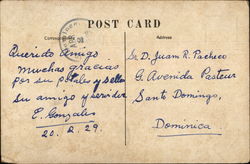 POST CARD
Querido Amigo
muchas gracias
por su postales y sellos
su amigo y servidor
E. Gonzales
20.2.29.
Sr D. Juan R. Pacheco
6. Avenida Pasteur
Santo Domingo,
Dominica